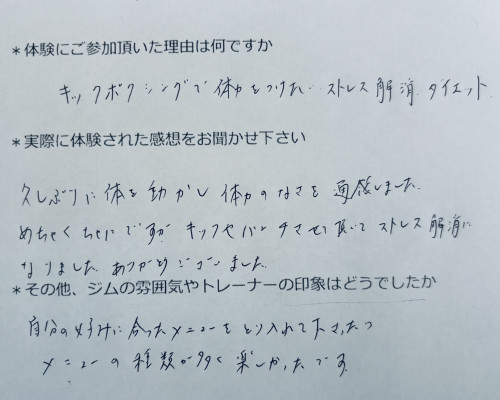 ＊体験にご参加頂いた理由は何ですか
キックボクシングで体力をつけたい ストレス解消 ダイエット
＊実際に体験された感想をお聞かせ下さい
久しぶりに体を動かし 体力のなさを痛感しました。
めちゃくちゃにですが キックやパンチさせて頂いて ストレス解消に
なりました。ありがとうございました。
＊その他、ジムの雰囲気やトレーナーの印象はどうでしたか
自分の好みに合ったメニューをとり入れて下さったり
メニューの種類が多く楽しかったです。